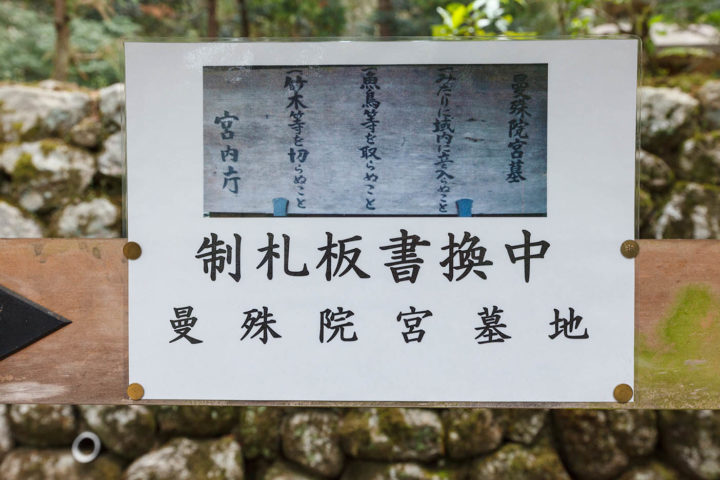 曼殊院宮墓
一、みだりに域内に立入らぬこと
一、魚鳥等を取らぬこと
一、竹木等を切らぬこと
宮内庁
制札板書換中
曼殊院宮墓地